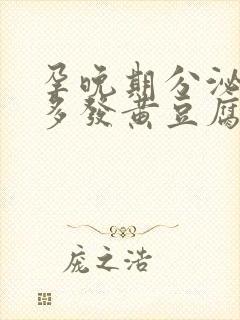 孕晚期分泌
多发黄豆腐
庞之浩